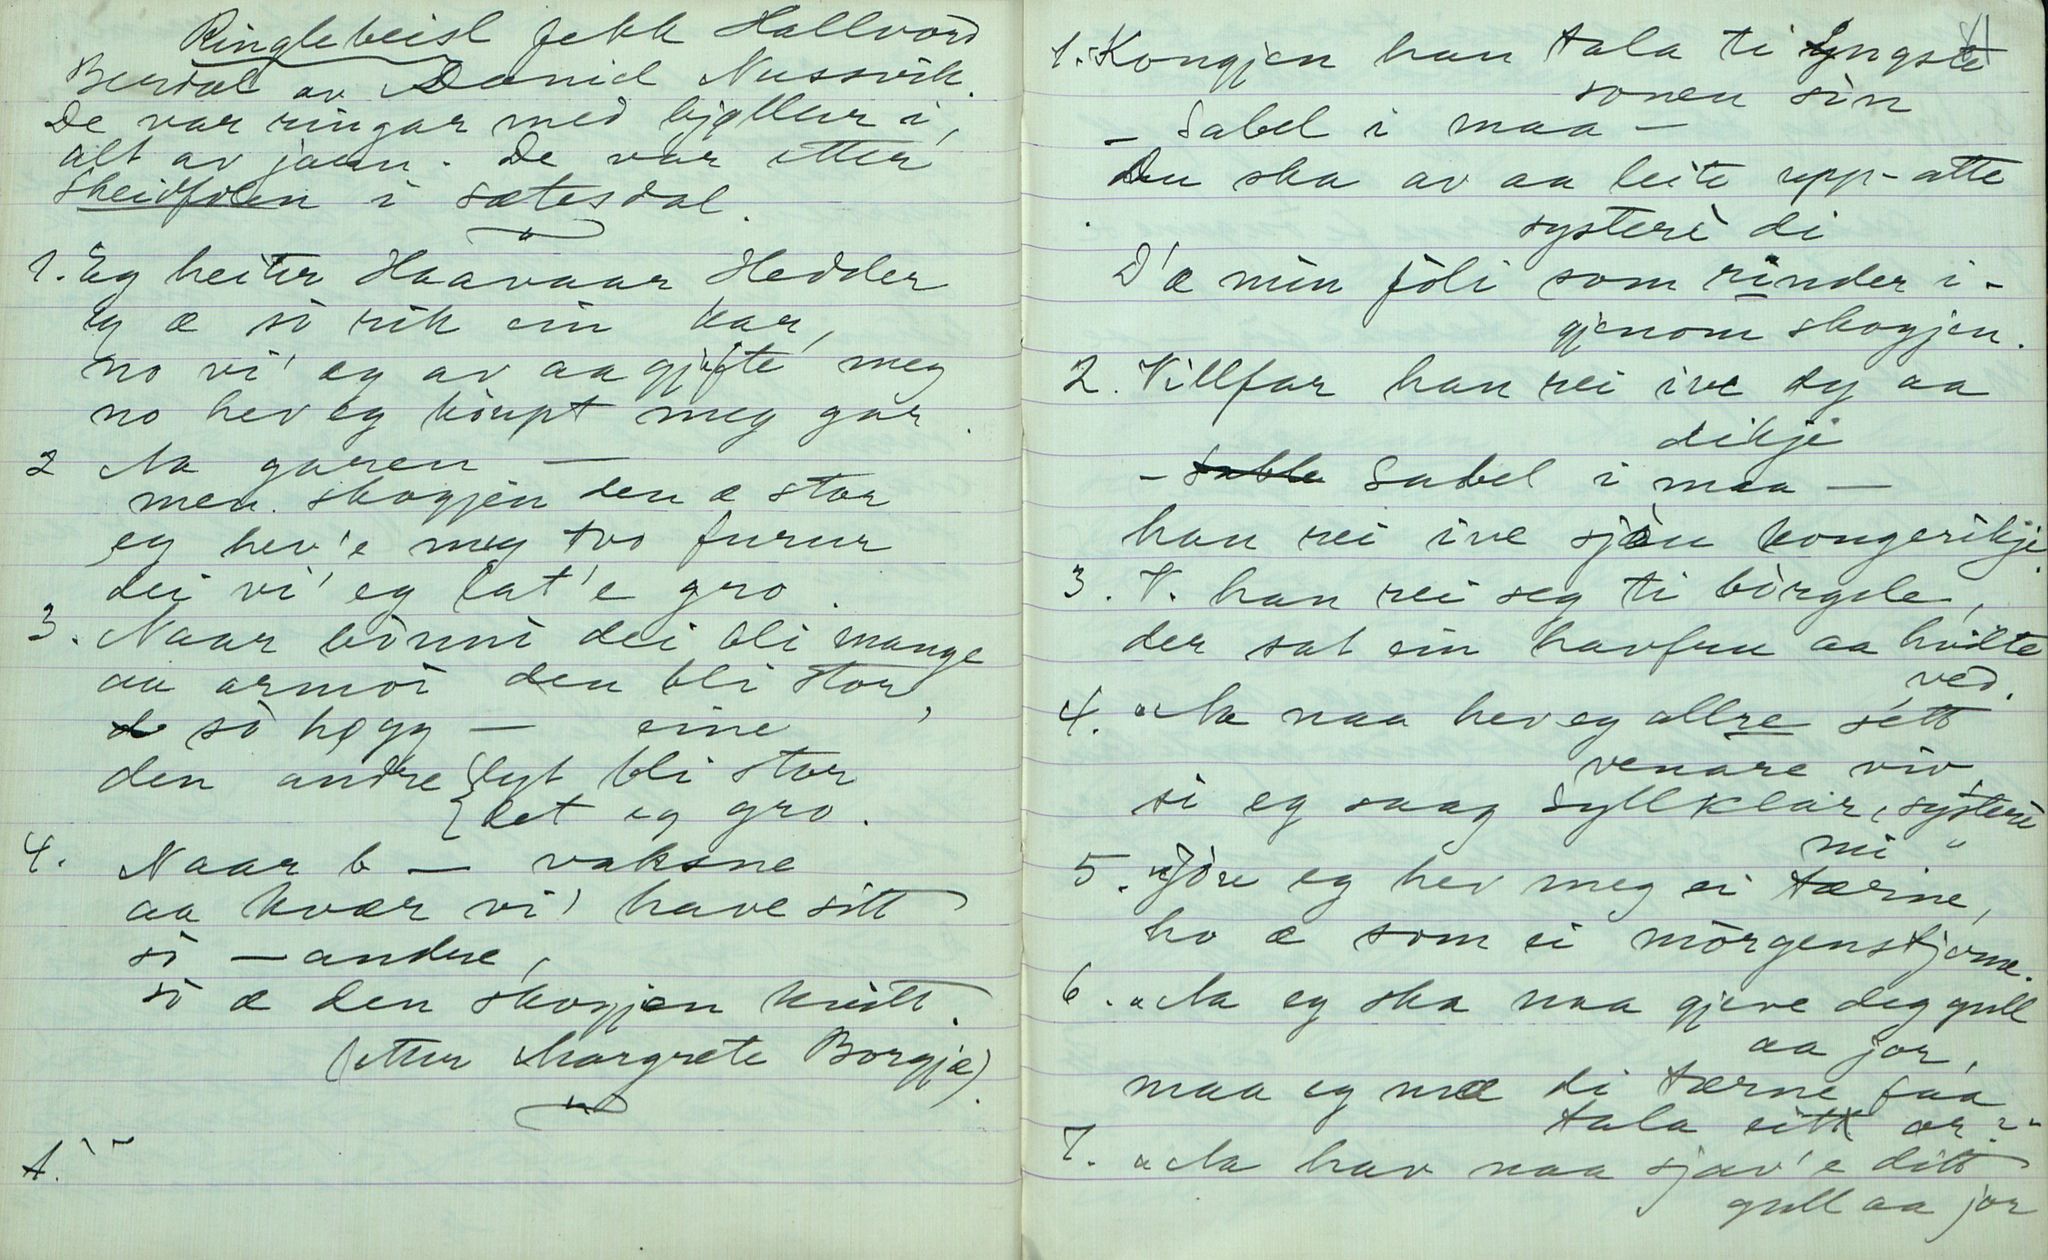 Ringlebeisl fekk Hallvord
Berdal av Daniel Nussvik.
De var ringar med bjøllur i,
alt av jaan. De var etter
Skeidfolen i Sætesdal.
1. Eg heiter Haavaar Hedder
eg æ so rik ein kar,
no vi' eg av aa gjifte meg
no hev eg kòupt meg gar.
2 Aa garen —
men skogjen den æ stor
eg hev'e meg tvo furur
dei vi' eg lat'e gro.
3. Naar bònni dei bli mange
aa armoi den bli stor,
so høgg — eine
den andre lyt bli stor
let eg gro.
4. Naar b — vaksne
aa kvær vi' have sitt
so — andre,
so æ den skogjen kvitt.
(etter Margrete Borgjæ).
A.
1. Kongjen han tala ti yngste
sonen sin
— Sabel i maa —
Du ska av aa leite upp-atte
systerè di
D'æ min foli som rinder i-
gjenom skogjen.
2. Villfar han rei ive dy aa
dikje
— Sabel i maa —
han rei ive sjøu kongerikje.
3. V. han rei seg ti bòrgele,
der sat ein havfru aa hvilte
ved.
4. "Aa naa hev eg allre sétt
venare viv,
si eg saag Syllklar, systerè
mi."
5. "Jòu eg hev meg ei tærne,
ho æ som ei mòrgenstjorne.
6. "Aa eg ska naa gjeve deg gull
aa jor,
maa eg mæ di tærne faa
tala eitt or?"
7. "Aa hav naa sjøv'e ditt
gull aa jor